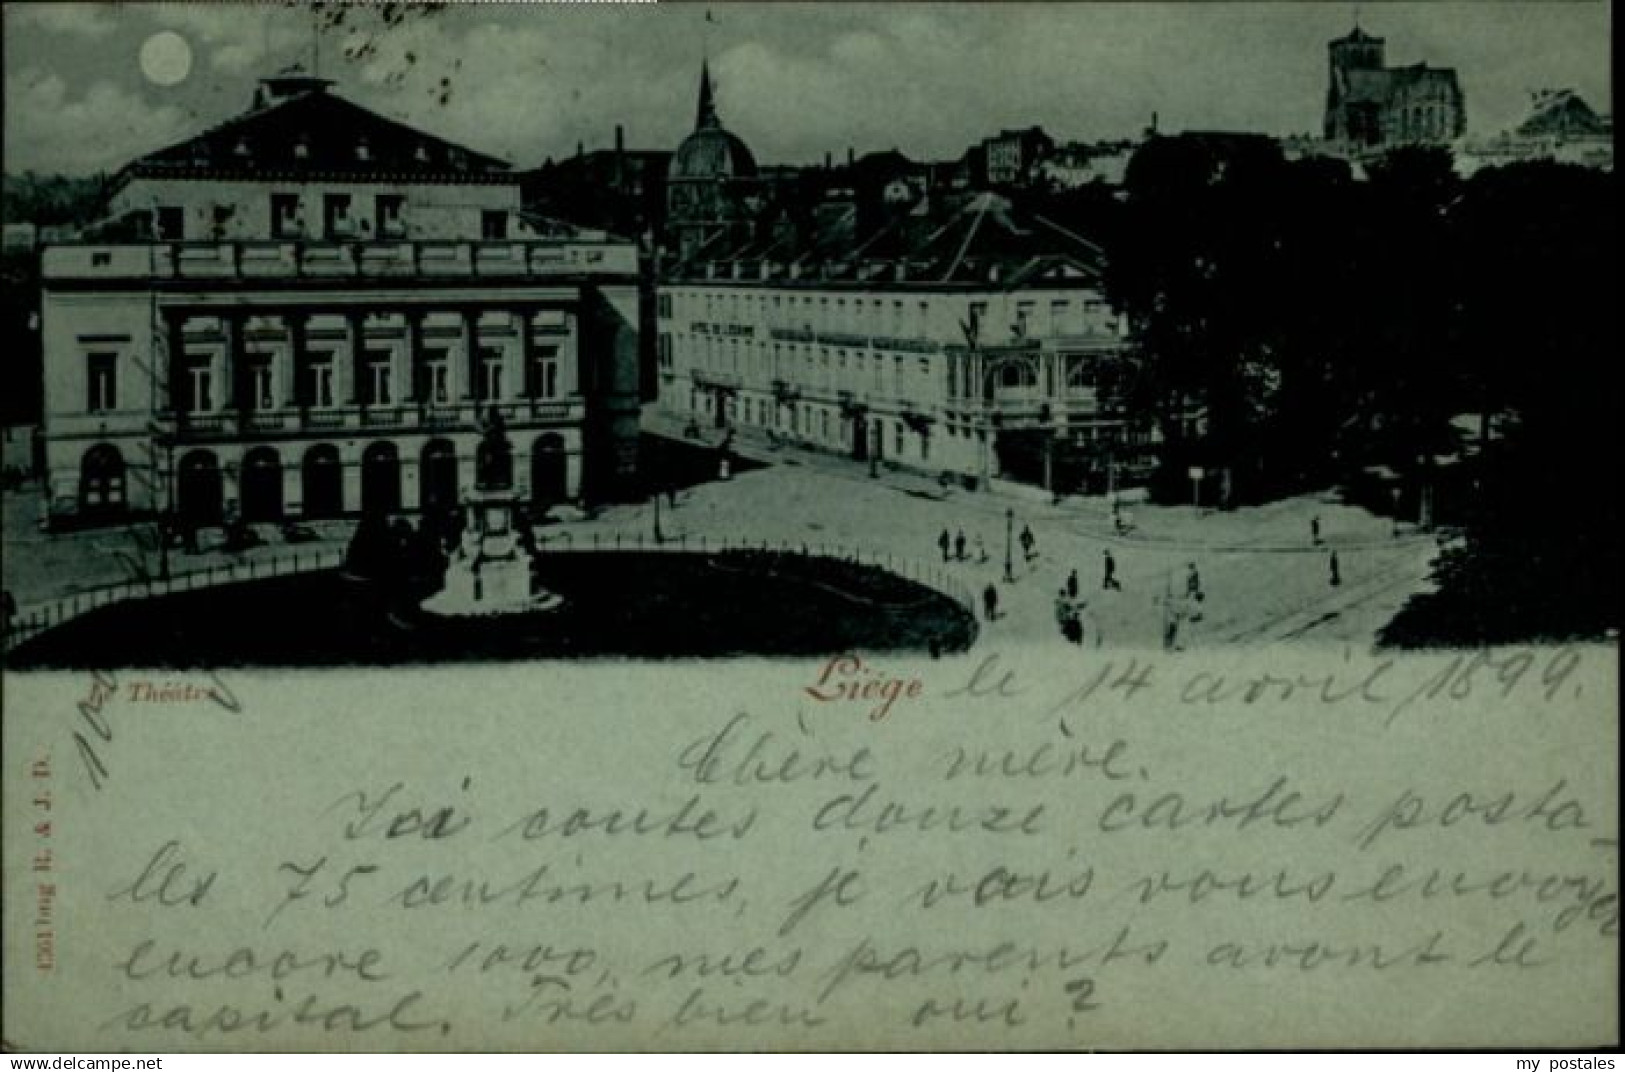 HOTEL DE L'EUROPE
Le Théâtre
Liége le 14 avril 1899.
100
Chère mère.
Ici coutes douze cartes posta-
les 75 centimes, je vais vous envoyer
encore 1000, mes parents avont le
capital. Très bien oui ?
R. & J. D.
Delcampe
my_postales